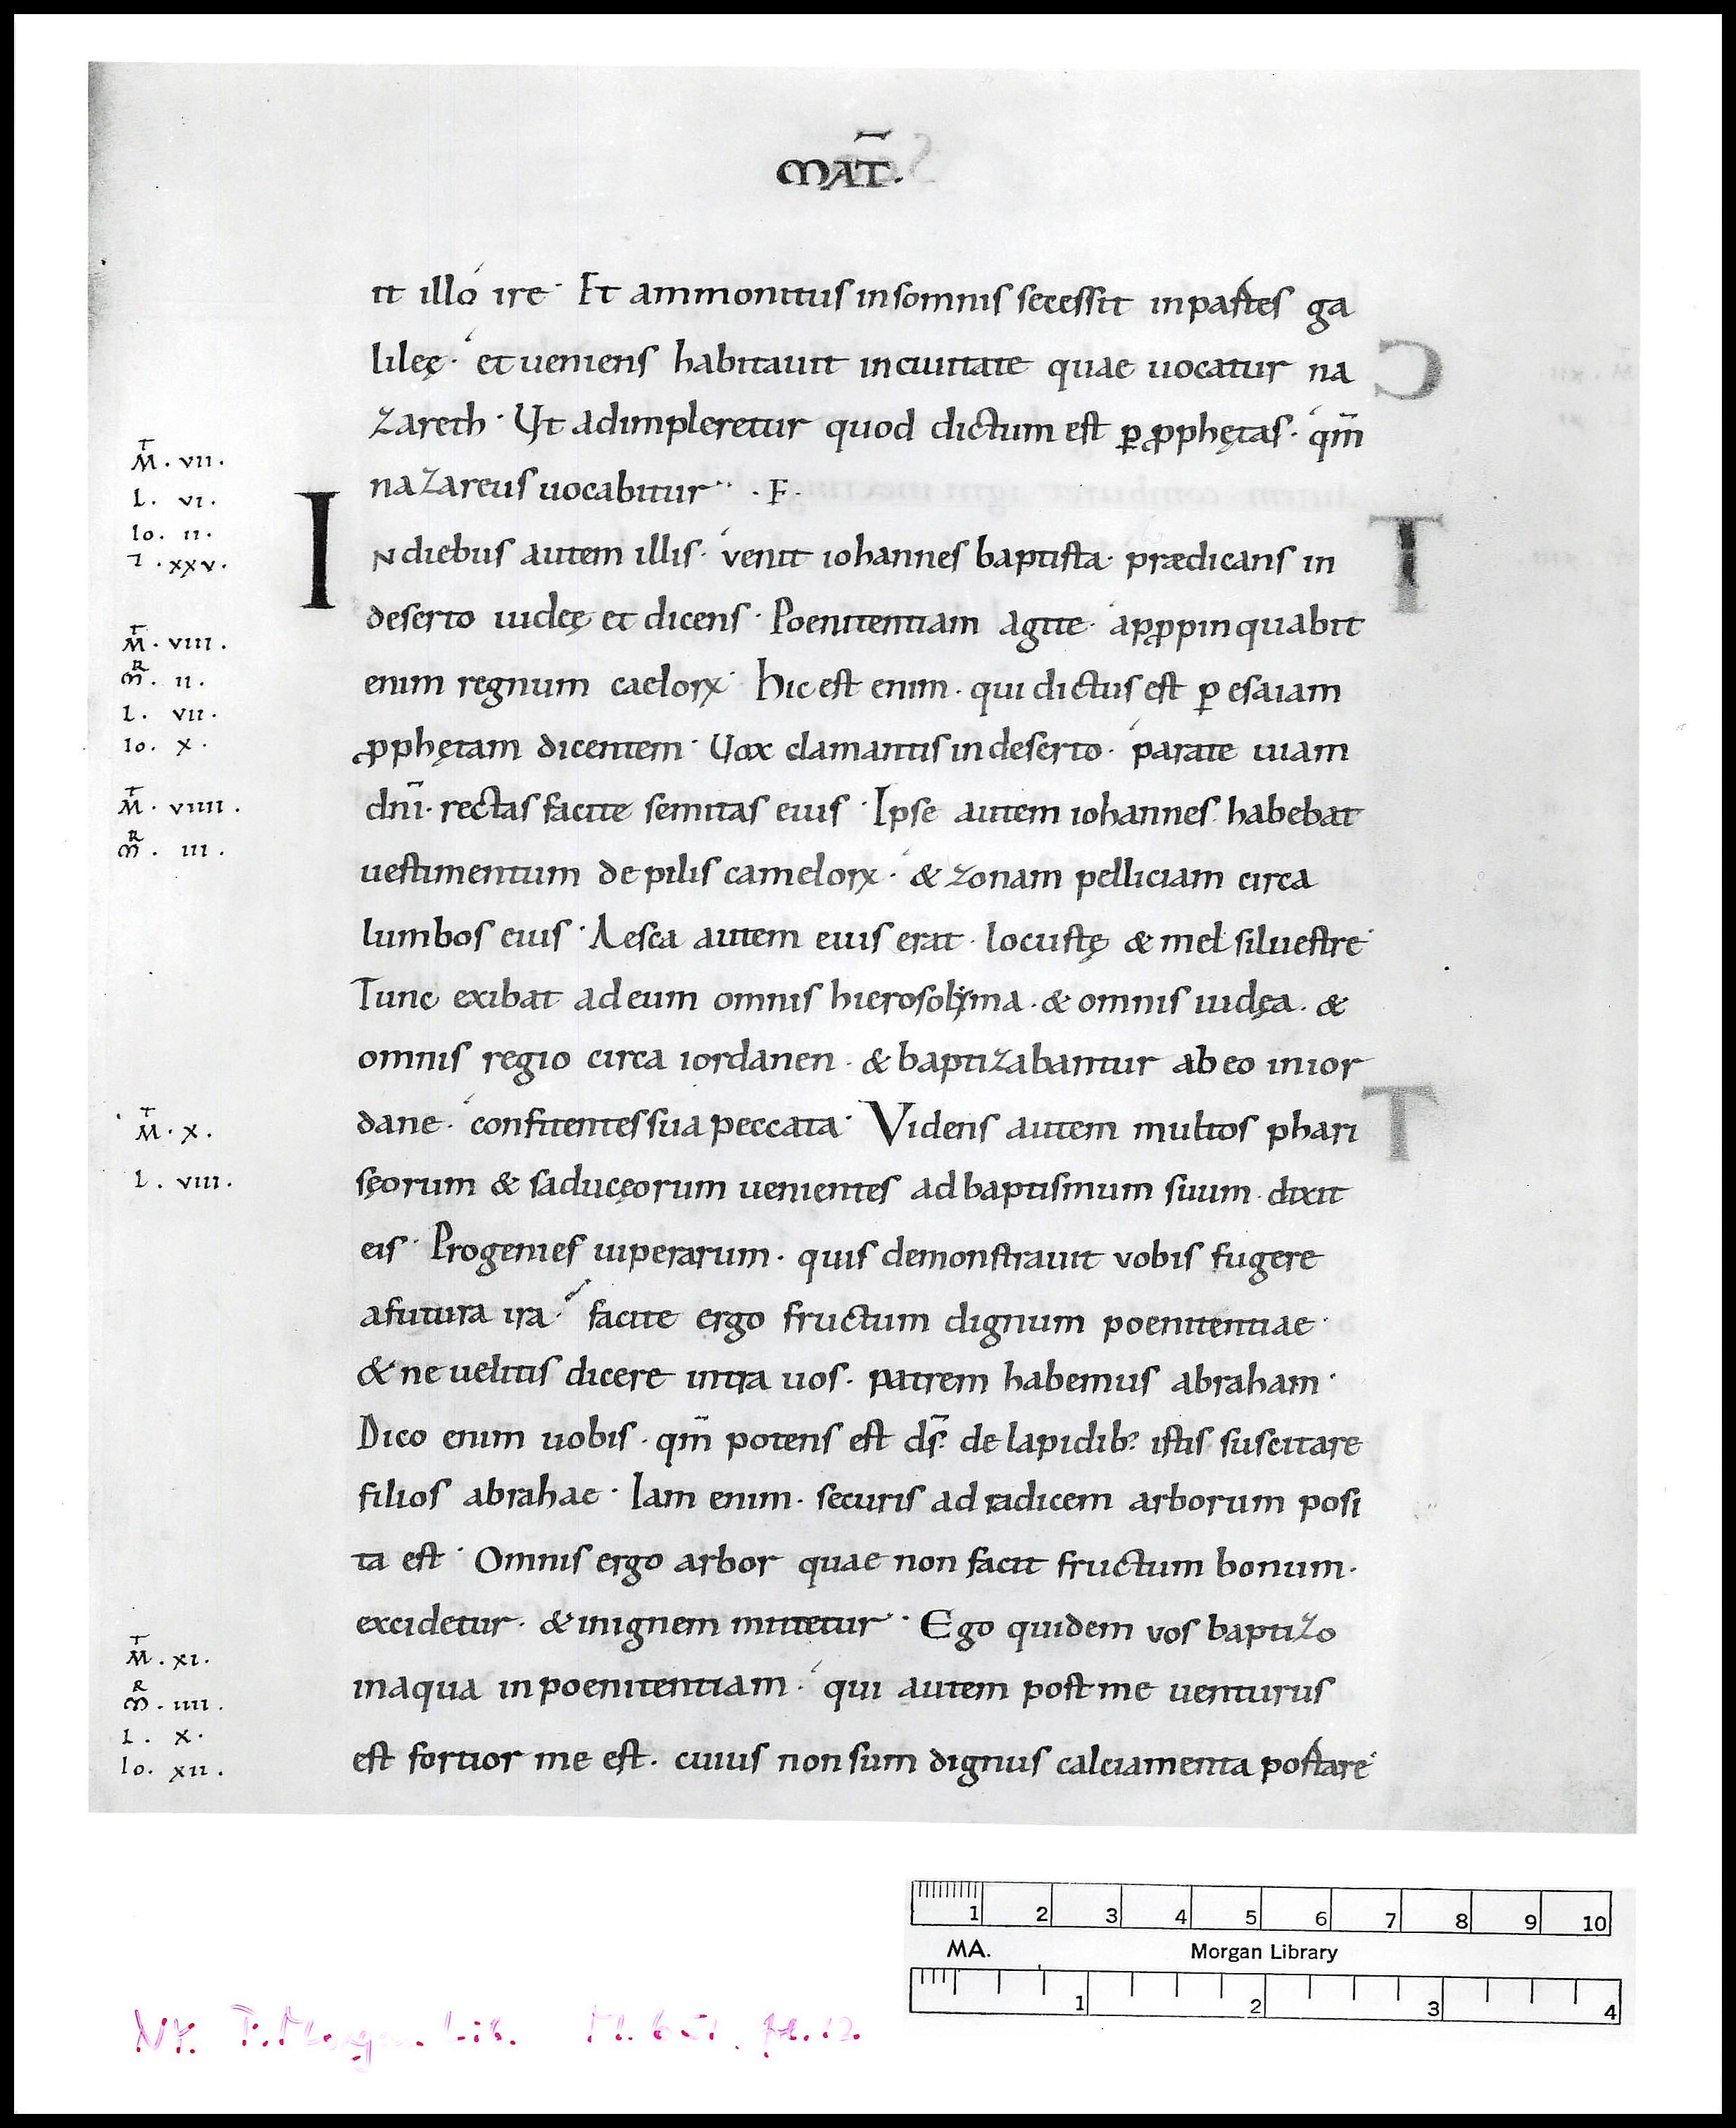 MAT̄.
it illo ire · Et ammonitus in somnis secessit in partes ga
lileę · et veniens habitauit in ciuitate quae uocatur na
zareth · Ut adimpleretur quod dictum est ꝑ ꝓphętas · qm̄
nazareus uocabitur · F ·
M̄ · VII ·
L · VI ·
Io · II ·
⁊ · XXV ·
IN diebus autem illis · venit iohannes baptista · prædicans in
deserto iudeę et dicens · Poenitentiam agite · apꝓpinquabit
M̄ · VIII ·
M̄R · II ·
L · VII ·
Io · X ·
enim regnum caeloꝝ · Hic est enim · qui dictus est ꝑ esaiam
ꝓphętam dicentem · Uox clamantis in deserto · parate uiam
dn̄i · rectas facite semitas eius · Ipse autem iohannes habebat
M̄ · VIIII ·
M̄R · III ·
uestimentum de pilis cameloꝝ · & zonam pelliciam circa
lumbos eius · Aesca autem eius erat · locustę & mel siluestre ·
Tunc exibat ad eum omnis hierosolẏma · & omnis iudęa · &
omnis regio circa iordanen · & baptizabantur ab eo in ior
dane · confitentes sua peccata · Videns autem multos phari
M̄ · X ·
L · VIII ·
sęorum & saducęorum uenientes ad baptismum suum · dixit
eis · Progenies uiperarum · quis demonstrauit vobis fugere
a futura ira · facite ergo fructum dignum poenitentiae ·
& ne uelitis dicere intra uos · patrem habemus abraham ·
Dico enim uobis · qm̄ potens est ds̄ · de lapidib; istis suscitare
filios abrahae · Iam enim · securis ad radicem arborum posi
ta est · Omnis ergo arbor quae non facit fructum bonum ·
excidetur · & in ignem mittetur · Ego quidem vos baptizo
M̄ · XI ·
M̄R · IIII ·
L · X ·
Io · XII ·
in aqua in poenitentiam · qui autem post me uenturus
est fortior me est · cuius non sum dignus calciamenta portare ·
1 2 3 4 5 6 7 8 9 10
MA. Morgan Library
1 2 3 4